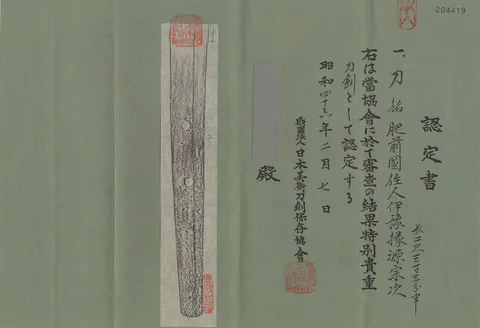 204419
認定書
一、刀 銘 肥前國住人伊豫掾源宗次
長二尺三寸三分半
右は當協會に於て審査の結果特別貴重
刀劍として認定する
昭和四十六年二月七日
財團法人日本美術刀劍保存協會
殿